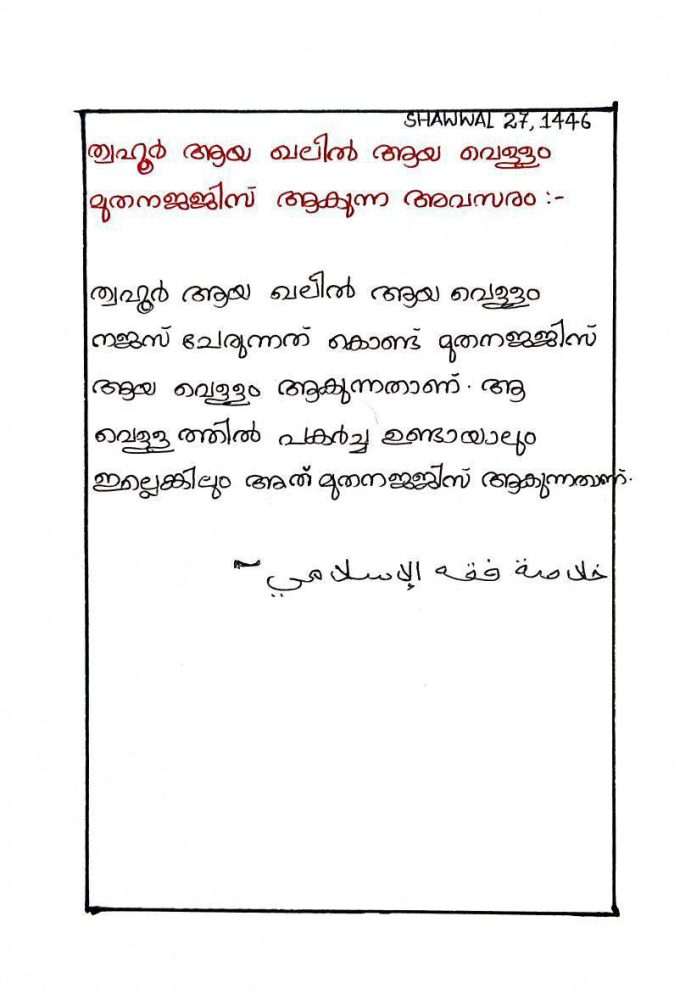 SHAWWAL 27, 1446
ത്വഹൂർ ആയ ഖലീൽ ആയ വെള്ളം
മുതനജജിസ് ആകുന്ന അവസരം :-
ത്വഹൂർ ആയ ഖലീൽ ആയ വെള്ളം
നജസ് ചേരുന്നത് കൊണ്ട് മുതനജജിസ്
ആയ വെള്ളം ആകുന്നതാണ്. ആ
വെള്ളത്തിൽ പകർച്ച ഉണ്ടായാലും
ഇല്ലെങ്കിലും അത് മുതനജജിസ് ആകുന്നതാണ്.
خلاصة فقه الإسلامي ~